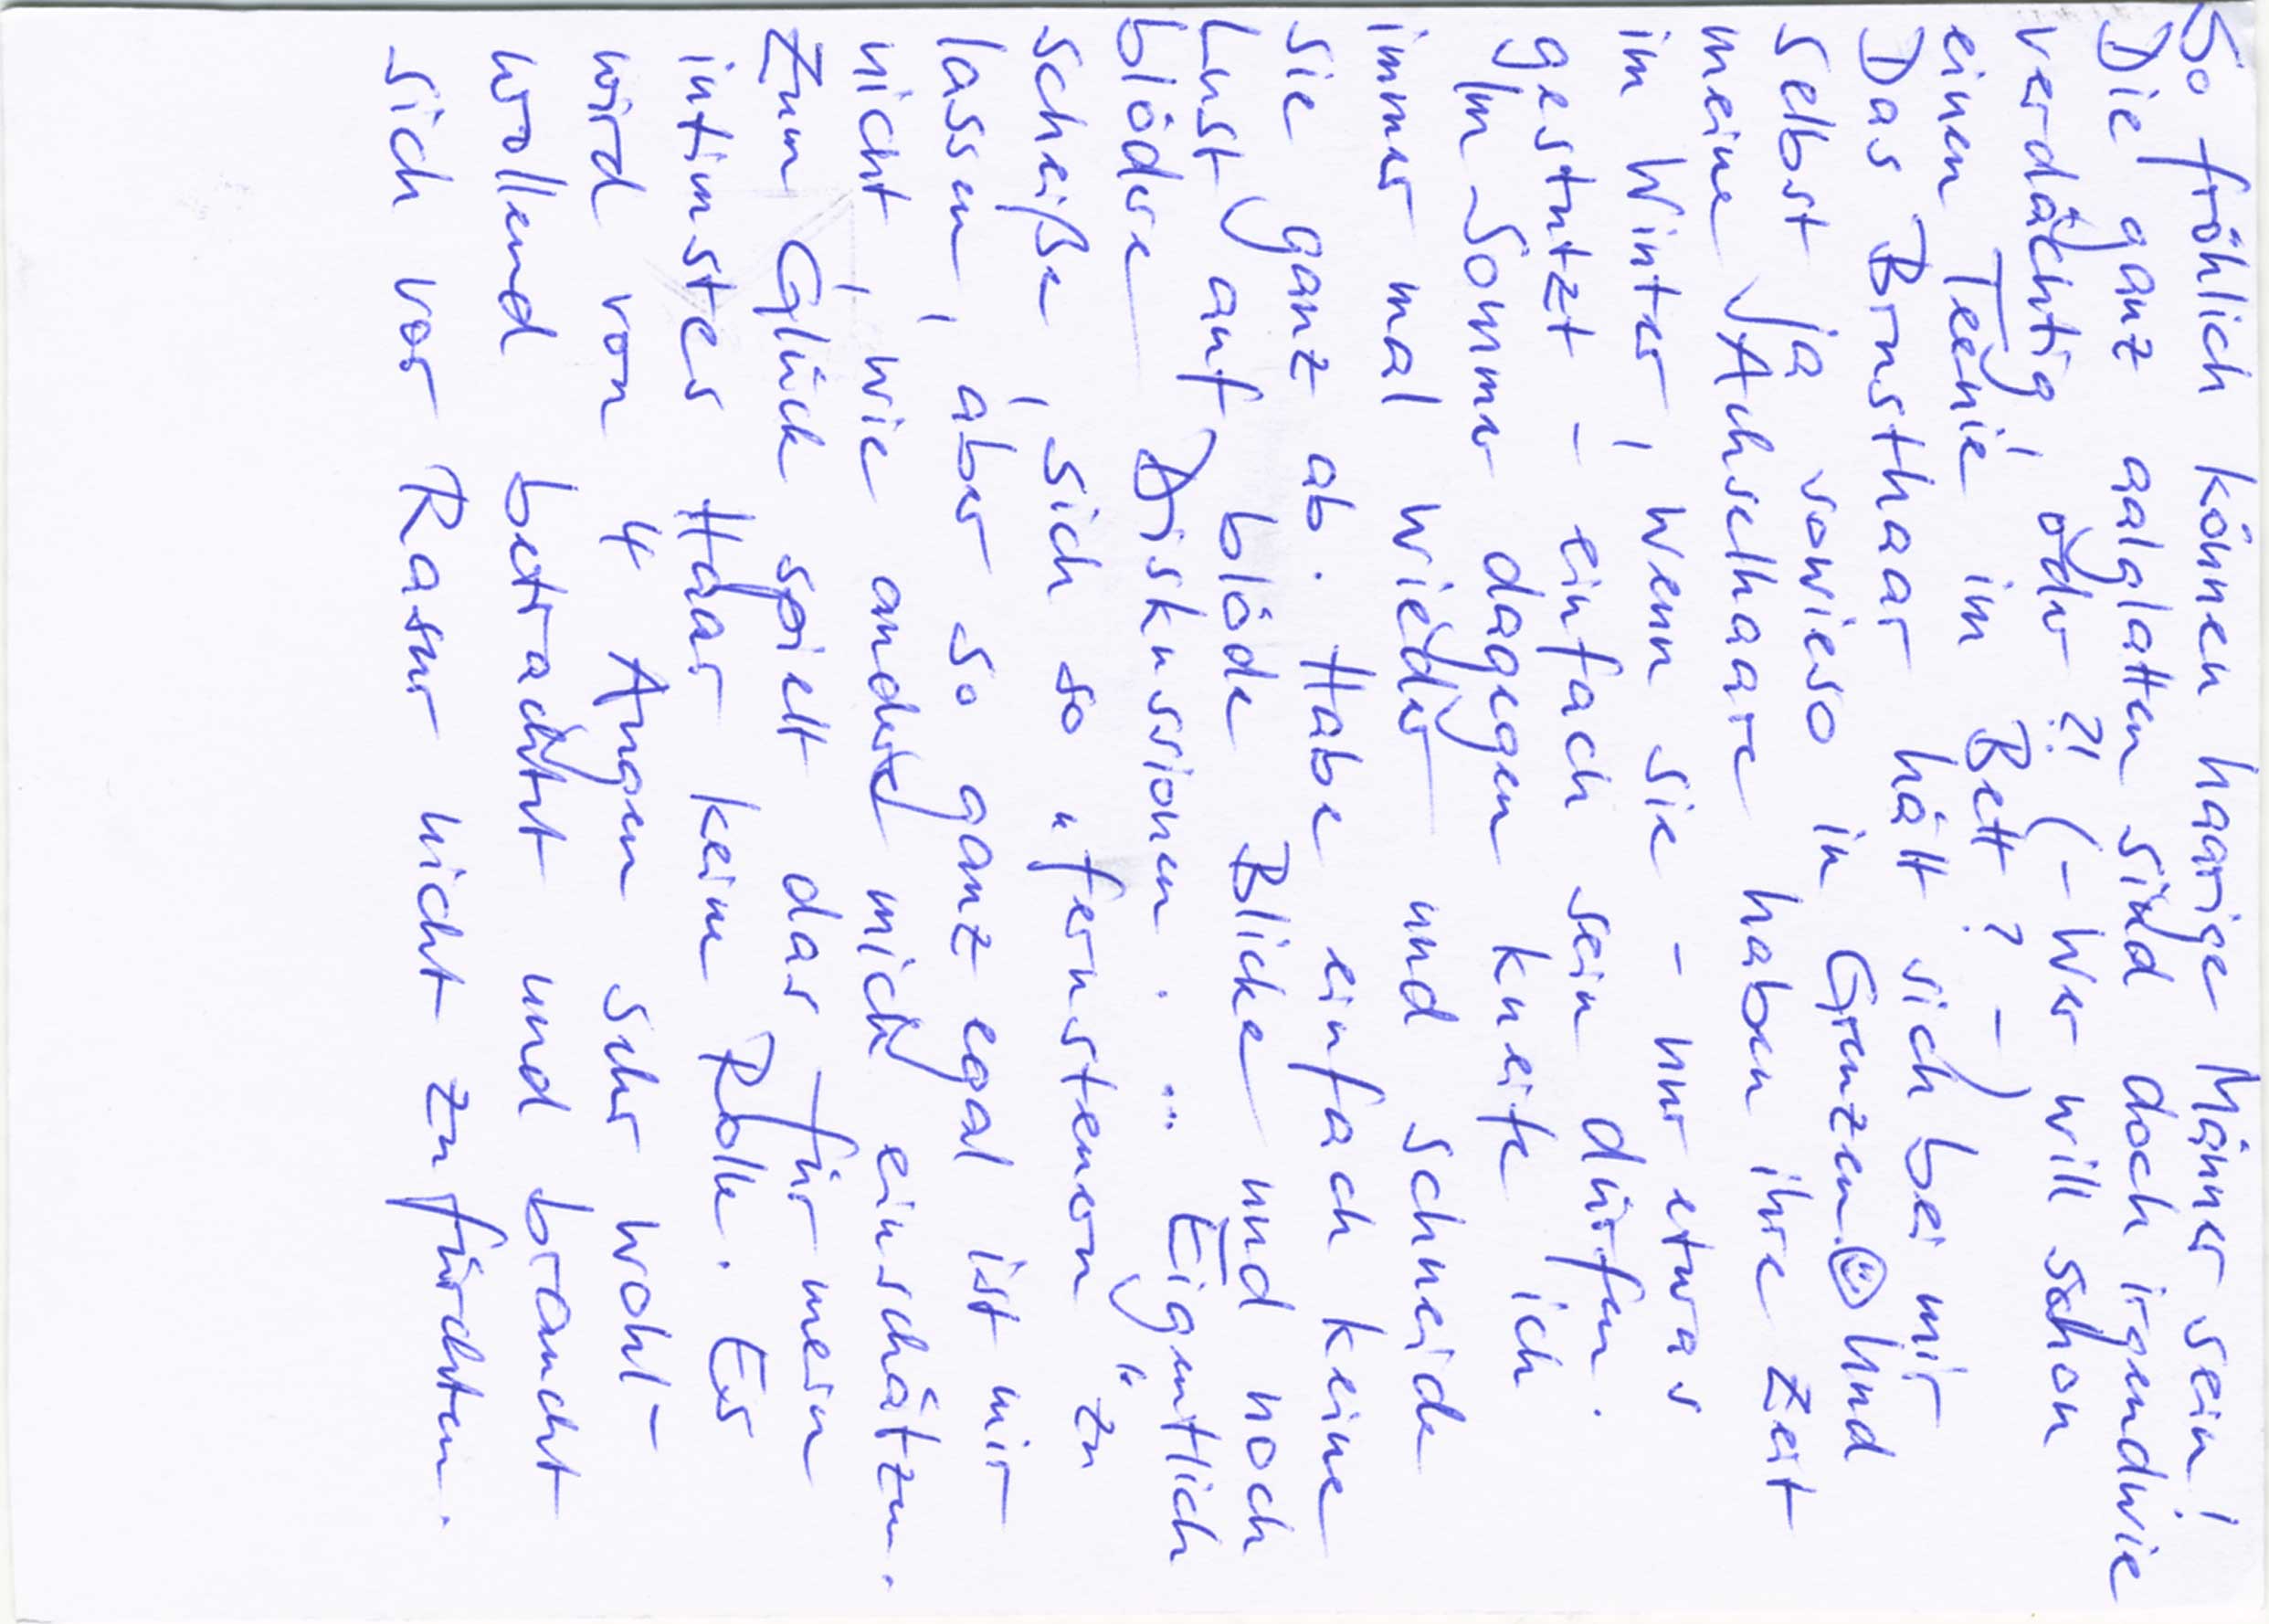 So fröhlich können haarige Männer sein!
Die ganz aalglatten sind doch irgendwie
verdächtig, oder?! (- Wer will schon
einen Teenie im Bett? -)
Das Brusthaar hält sich bei mir
selbst ja sowieso in Grenzen ☺ Und
meine Achselhaare haben ihre Zeit
im Winter, wenn sie - nur etwas
gestutzt - einfach sein dürfen.
Im Sommer dagegen kneife ich
immer mal wieder und schneide
sie ganz ab. Habe einfach keine
Lust auf blöde Blicke und noch
blödere Diskussionen... Eigentlich
scheiße, sich so "fernsteuern" zu
lassen, aber so ganz egal ist mir
nicht, wie andere mich einschätzen.
Zum Glück spielt das für mein
intimstes Haar keine Rolle. Es
wird von 4 Augen sehr wohl-
wollend betrachtet und braucht
sich vor Rasur nicht zu fürchten.